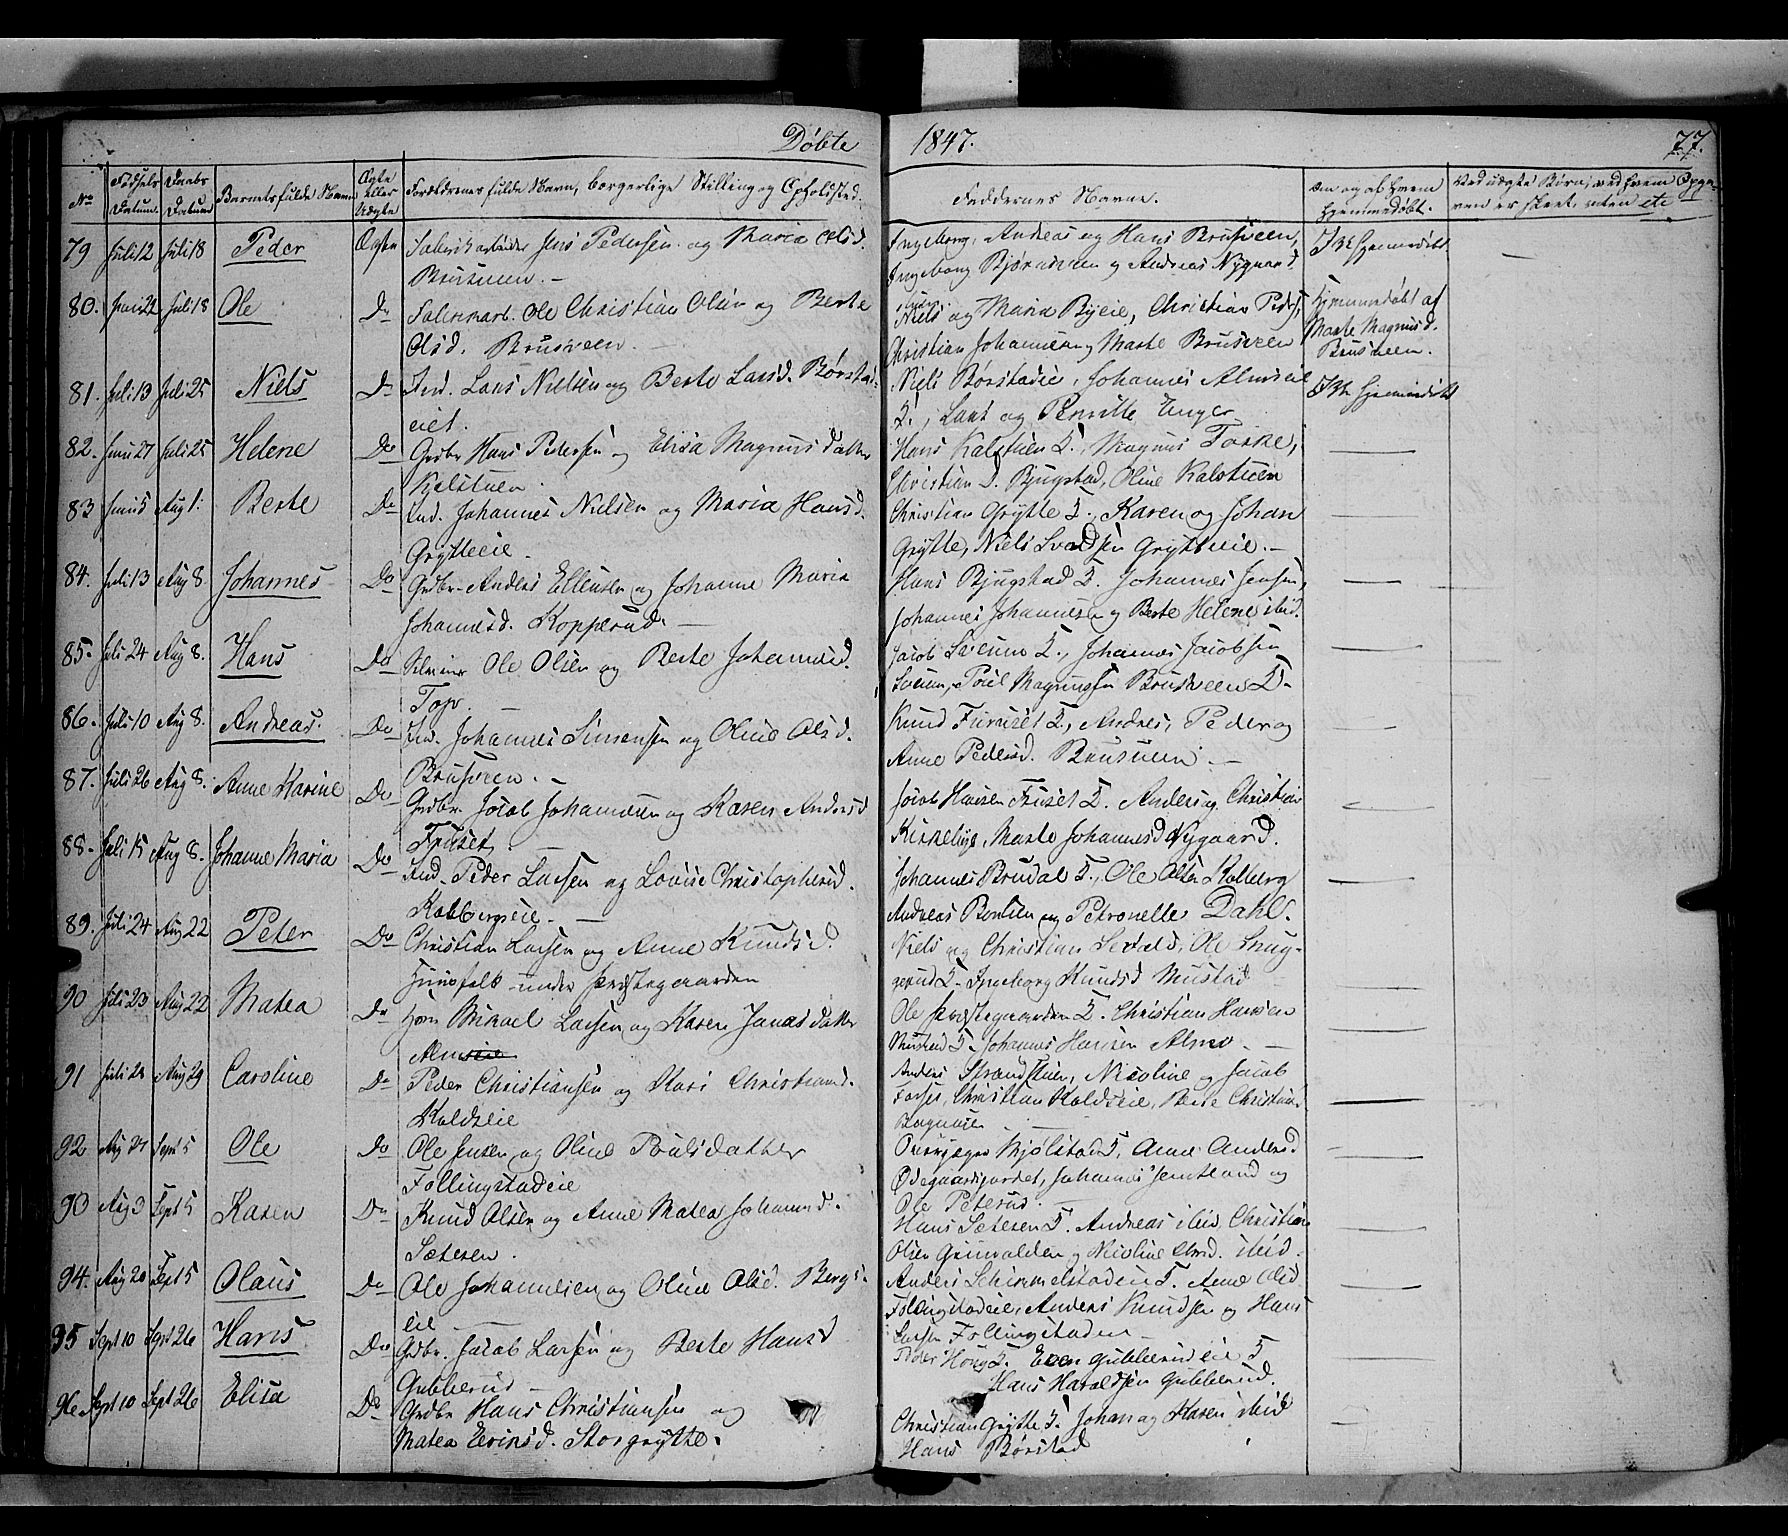 Døbte 1847. 77.
No Fødsels Datum. Daabs Datum Barnets fulde Navn Ægte eller Uægte Forældrenes fulde Navn, borgerlige Stilling og Opholdsted. Faddernes Navne. Om og af hvem hjemmedøbt. Ved uægte Børn, ved hvem Opga-
ven er skeet. uten etc
79 Juli 12 Juli 18 Peder Ægte Jens Pedersen og Maria Olsd. Ingeborg, Andreas og Hans Brusveen, Ikke hjemmedøbt
Brusveen. — Ingeborg Bjørnsveen og Andreas Nygaard
80. Juni 22 Juli 18 Ole Do Ole Christian Olsen og Berte Niels og Maria Byeie, Christian Peders. Hjemmedøbt af
Olsd. Brusveen. — Christian Johannesen og Marte Brusveen Marte Magnusd.
Brusveen.
81. Juli 13 Juli 25 Niels Do Ind. Lars Nielsen og Berte Larsd. Børstad- Niels Børstadeie, Johannes Almseie Ikke hjemmedøbt
eiet. Lars og Pernille Enger
82. Juni 27 Juli 25 Helene Do Grdbr Hans Pedersen og Elisa Magnusdatter Hans Kalstuen Magnus Foske,
Kalstuen. Christian D. Bjugstad, Oline Kalstuen
83 Juni 5 Aug 1. Berte Do Ind. Johannes Nielsen og Maria Hansd. Christian Grytte Karen og Johan
Grytteeie. Grytte, Niels Grytteeie. —
84. Juli 13 Aug 8. Johannes Do Grdbr. Anders Ellensen og Johanne Maria Hans Bjugstad Johannes Jensen,
Johannesd. Kopperud. — Johannes Johannesen og Berte Helene ibid.
85. Juli 24 Aug 8. Hans Do Ole Olsen og Berte Johannesd. Jacob Sveum Johannes Jacobsen
Top. — Sveum, Poul Magnussen Brusveen
86. Juli 10 Aug 8. Andreas. Do Ind. Johannes Simensen og Oline Olsd. Knud Furuset Andreas, Peder og
Brusveen. — Anne Pedersd. Brusveen. —
87. Juli 26 Aug 8. Anne Karine Do Grdbr. Jacob Johannesen og Karen Andersd Jacob Hansen Anders og Christian
Kirkebye, Marte Johannesd Nygaard.
88. Juli 15 Aug 8. Johanne Maria Do Ind. Peder Larsen og Lovise Christophersd. Johannes Brudal Ole Olsen Kolberg
Kolbergseie. — Andreas og Petronelle Dahl.
89. Juli 24 Aug 22 Peter Do Christian Larsen og Anne Knudsd. Niels og Christian Ole Snug-
Huusfolk under Præstegaarden gerud Ingeborg Knudsd Mustad
90 Juli 23 Aug 22 Matea Do Mikael Larsen og Karen Jonasdatter Ole Præstegaarden Christian Hansen
Almseie Johannes Hansen Almo. —
91 Juli 24 Aug 29 Caroline Do Peder Christiansen og Kari Christiansd. Anders Strandstuen, Nicoline og Jacob
Koldseie Christian Koldseie, Berte Christians.
92 Aug 27 Sept 5 Ole Do Ole Jensen og Oline Poulsdatter Kjølstad, Anne Andersd
Follingstadeie Ødegaardsjordet, Johannes Jemtland og
Ole Peterud. —
93 Aug 3 Sept 5 Karen Do Knud Olsen og Anne Matea Johannesd. Hans Sætesen Andreas ibid, Christian
Sætesen. Olsen Grimsdalen og Nicoline ibid.
94. Aug 20 Sept 5 Olaus Do Ole Johannesen og Oline Olsd. Bergs- Anders Schimmelstadeie Anne Olsd
eie — Follingstadeie, Anders Knudsen og Hans
Larsen Follingstaden —
95 Sept 10 Sept 26 Hans Do Grdbr. Jacob Larsen og Berte Hansd Peder Haug Even Gubberudeie
Gubberud — Hans Haraldsen Gubberud.
96 Sept 10 Sept 26 Elisa Do Grdbr Hans Christiansen og Christian Grytte Johan og Karen ibid
Matea Evensd. Storgrytte. Hans Børstad